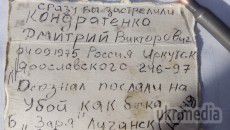 сразу вы застрелили
Кондратенко
Дмитрий Викторович
04 09 1975 Россия Иркутск
Ярославского 246-97
Опознал послали на
убой как бычка
"Заря" Луганск
ukramedia